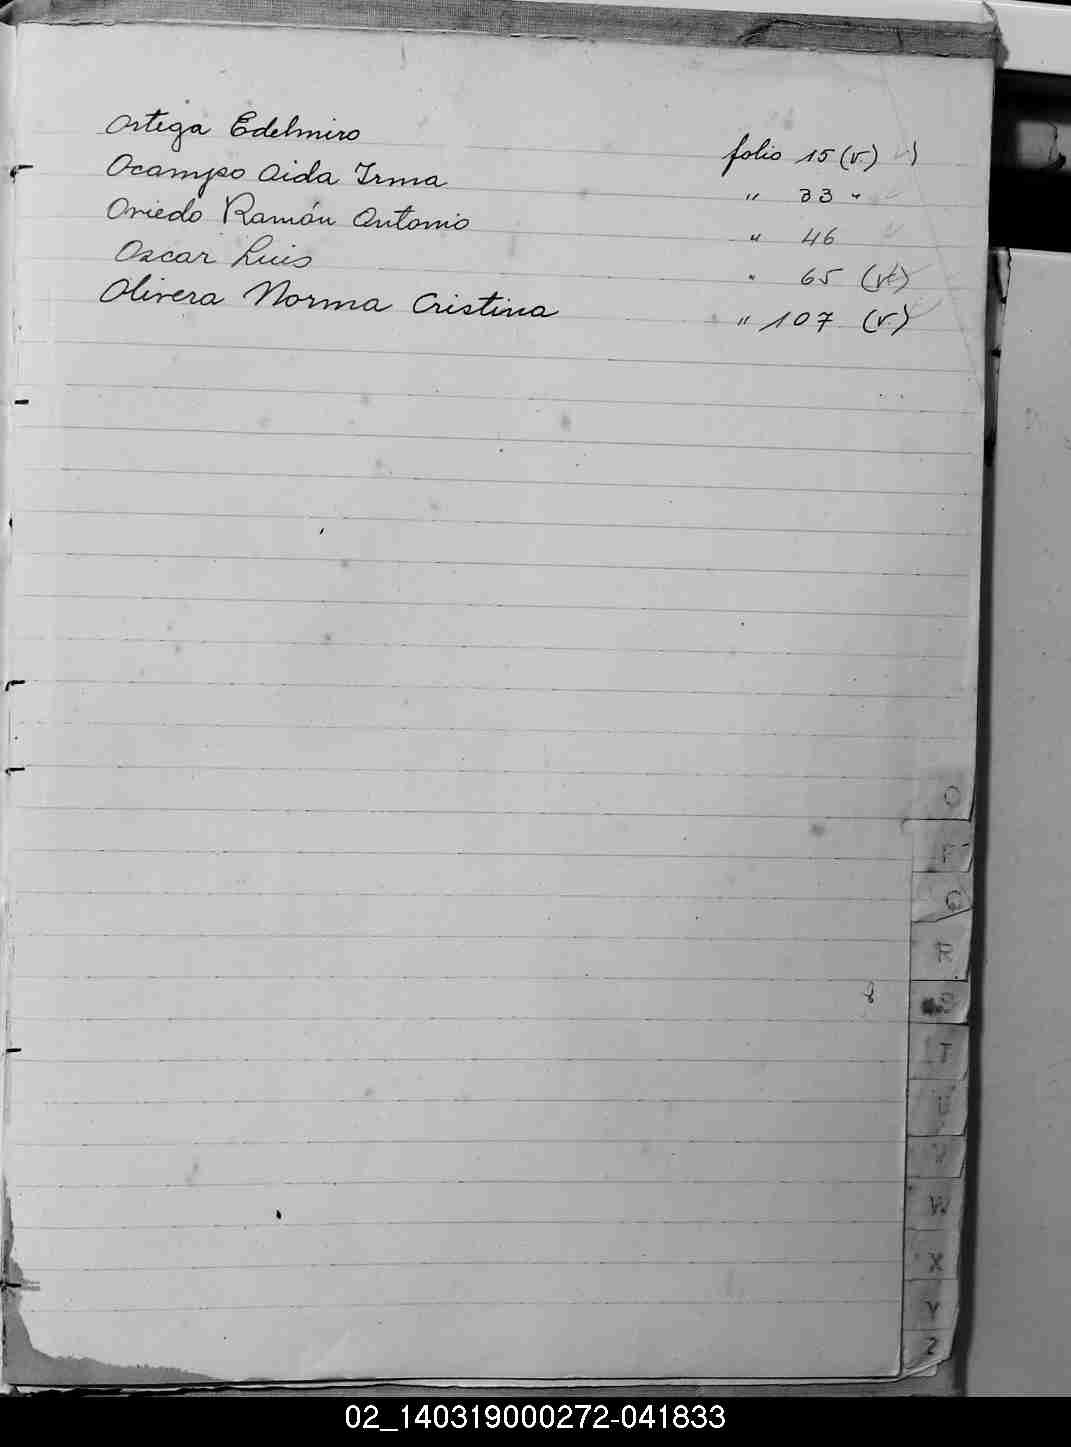 Ortega Edelmiro folio 15 (v.)
Ocampo Aida Irma " 33 "
Oviedo Ramón Antonio " 46
Oscar Luis " 65 (vt)
Olivera Norma Cristina " 107 (v.)
O
P
Q
R
8 S
T
U
V
W
X
Y
Z
02_140319000272-041833